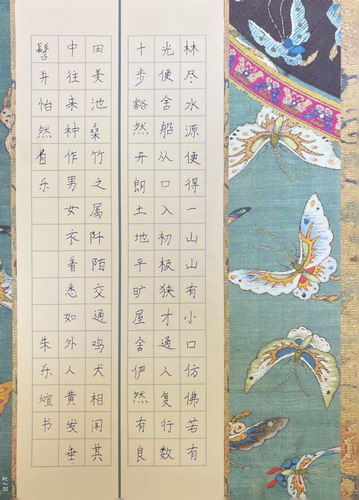 林尽水源便得一山山有小口仿佛若有
光便舍船从口入初极狭才通人复行数
十步豁然开朗土地平旷屋舍俨然有良
田美池桑竹之属阡陌交通鸡犬相闻其
中往来种作男女衣着悉如外人黄发垂
髫并怡然自乐 朱乐煊书